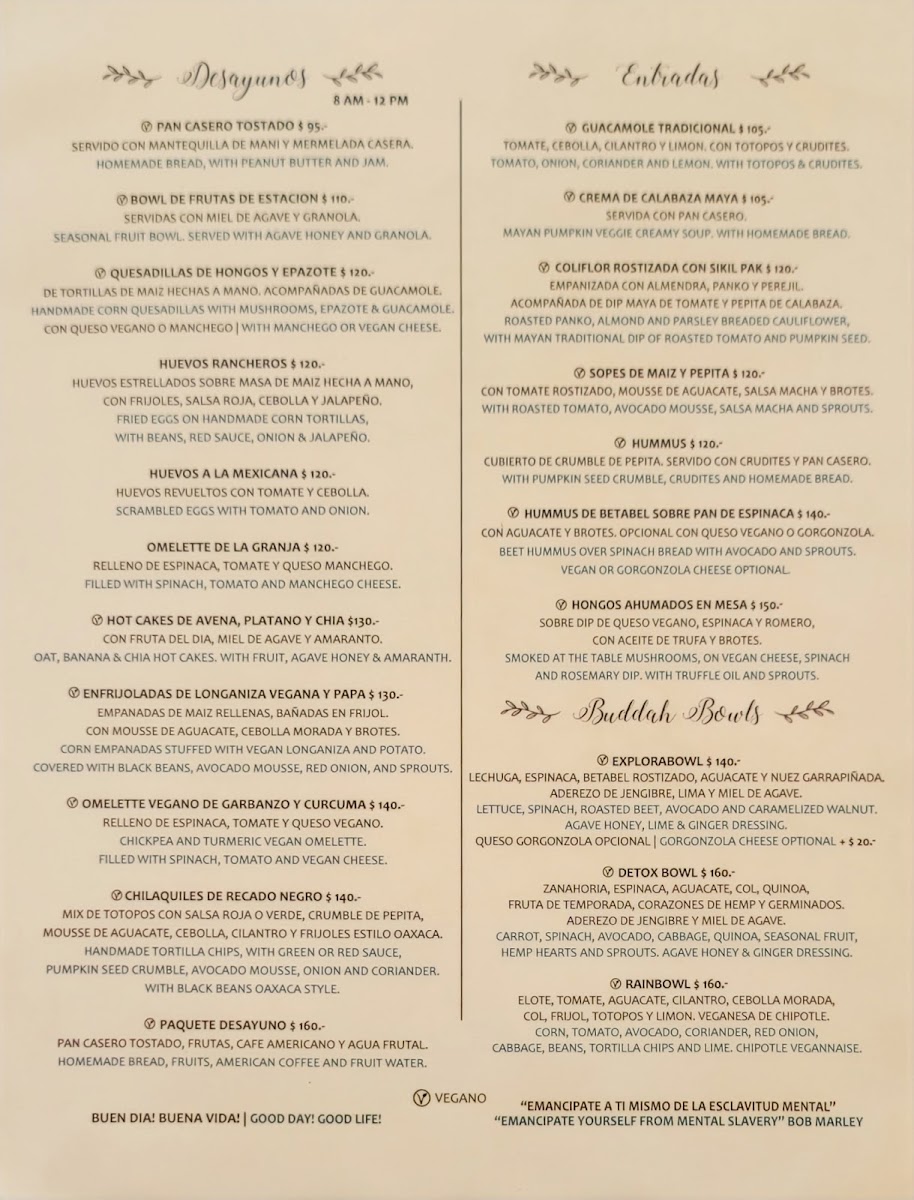 Desayunos
8 AM - 12 PM
Ⓥ PAN CASERO TOSTADO $ 95.-
SERVIDO CON MANTEQUILLA DE MANI Y MERMELADA CASERA.
HOMEMADE BREAD, WITH PEANUT BUTTER AND JAM.
Ⓥ BOWL DE FRUTAS DE ESTACION $ 110.-
SERVIDAS CON MIEL DE AGAVE Y GRANOLA.
SEASONAL FRUIT BOWL. SERVED WITH AGAVE HONEY AND GRANOLA.
Ⓥ QUESADILLAS DE HONGOS Y EPAZOTE $ 120.-
DE TORTILLAS DE MAIZ HECHAS A MANO. ACOMPAÑADAS DE GUACAMOLE.
HANDMADE CORN QUESADILLAS WITH MUSHROOMS, EPAZOTE & GUACAMOLE.
CON QUESO VEGANO O MANCHEGO | WITH MANCHEGO OR VEGAN CHEESE.
HUEVOS RANCHEROS $ 120.-
HUEVOS ESTRELLADOS SOBRE MASA DE MAIZ HECHA A MANO,
CON FRIJOLES, SALSA ROJA, CEBOLLA Y JALAPEÑO.
FRIED EGGS ON HANDMADE CORN TORTILLAS,
WITH BEANS, RED SAUCE, ONION & JALAPEÑO.
HUEVOS A LA MEXICANA $ 120.-
HUEVOS REVUELTOS CON TOMATE Y CEBOLLA.
SCRAMBLED EGGS WITH TOMATO AND ONION.
OMELETTE DE LA GRANJA $ 120.-
RELLENO DE ESPINACA, TOMATE Y QUESO MANCHEGO.
FILLED WITH SPINACH, TOMATO AND MANCHEGO CHEESE.
Ⓥ HOT CAKES DE AVENA, PLATANO Y CHIA $130.-
CON FRUTA DEL DIA, MIEL DE AGAVE Y AMARANTO.
OAT, BANANA & CHIA HOT CAKES. WITH FRUIT, AGAVE HONEY & AMARANTH.
Ⓥ ENFRIJOLADAS DE LONGANIZA VEGANA Y PAPA $ 130.-
EMPANADAS DE MAIZ RELLENAS, BAÑADAS EN FRIJOL.
CON MOUSSE DE AGUACATE, CEBOLLA MORADA Y BROTES.
CORN EMPANADAS STUFFED WITH VEGAN LONGANIZA AND POTATO.
COVERED WITH BLACK BEANS, AVOCADO MOUSSE, RED ONION, AND SPROUTS.
Ⓥ OMELETTE VEGANO DE GARBANZO Y CURCUMA $ 140.-
RELLENO DE ESPINACA, TOMATE Y QUESO VEGANO.
CHICKPEA AND TURMERIC VEGAN OMELETTE.
FILLED WITH SPINACH, TOMATO AND VEGAN CHEESE.
Ⓥ CHILAQUILES DE RECADO NEGRO $ 140.-
MIX DE TOTOPOS CON SALSA ROJA O VERDE, CRUMBLE DE PEPITA,
MOUSSE DE AGUACATE, CEBOLLA, CILANTRO Y FRIJOLES ESTILO OAXACA.
HANDMADE TORTILLA CHIPS, WITH GREEN OR RED SAUCE,
PUMPKIN SEED CRUMBLE, AVOCADO MOUSSE, ONION AND CORIANDER.
WITH BLACK BEANS OAXACA STYLE.
Ⓥ PAQUETE DESAYUNO $ 160.-
PAN CASERO TOSTADO, FRUTAS, CAFE AMERICANO Y AGUA FRUTAL.
HOMEMADE BREAD, FRUITS, AMERICAN COFFEE AND FRUIT WATER.
Entradas
Ⓥ GUACAMOLE TRADICIONAL $ 105.-
TOMATE, CEBOLLA, CILANTRO Y LIMON. CON TOTOPOS Y CRUDITES.
TOMATO, ONION, CORIANDER AND LEMON. WITH TOTOPOS & CRUDITES.
Ⓥ CREMA DE CALABAZA MAYA $ 105.-
SERVIDA CON PAN CASERO.
MAYAN PUMPKIN VEGGIE CREAMY SOUP. WITH HOMEMADE BREAD.
Ⓥ COLIFLOR ROSTIZADA CON SIKIL PAK $ 120.-
EMPANIZADA CON ALMENDRA, PANKO Y PEREJIL.
ACOMPAÑADA DE DIP MAYA DE TOMATE Y PEPITA DE CALABAZA.
ROASTED PANKO, ALMOND AND PARSLEY BREADED CAULIFLOWER,
WITH MAYAN TRADITIONAL DIP OF ROASTED TOMATO AND PUMPKIN SEED.
Ⓥ SOPES DE MAIZ Y PEPITA $ 120.-
CON TOMATE ROSTIZADO, MOUSSE DE AGUACATE, SALSA MACHA Y BROTES.
WITH ROASTED TOMATO, AVOCADO MOUSSE, SALSA MACHA AND SPROUTS.
Ⓥ HUMMUS $ 120.-
CUBIERTO DE CRUMBLE DE PEPITA. SERVIDO CON CRUDITES Y PAN CASERO.
WITH PUMPKIN SEED CRUMBLE, CRUDITES AND HOMEMADE BREAD.
Ⓥ HUMMUS DE BETABEL SOBRE PAN DE ESPINACA $ 140.-
CON AGUACATE Y BROTES. OPCIONAL CON QUESO VEGANO O GORGONZOLA.
BEET HUMMUS OVER SPINACH BREAD WITH AVOCADO AND SPROUTS.
VEGAN OR GORGONZOLA CHEESE OPTIONAL.
Ⓥ HONGOS AHUMADOS EN MESA $ 150.-
SOBRE DIP DE QUESO VEGANO, ESPINACA Y ROMERO,
CON ACEITE DE TRUFA Y BROTES.
SMOKED AT THE TABLE MUSHROOMS, ON VEGAN CHEESE, SPINACH
AND ROSEMARY DIP. WITH TRUFFLE OIL AND SPROUTS.
Buddah Bowls
Ⓥ EXPLORABOWL $ 140.-
LECHUGA, ESPINACA, BETABEL ROSTIZADO, AGUACATE Y NUEZ GARRAPIÑADA.
ADEREZO DE JENGIBRE, LIMA Y MIEL DE AGAVE.
LETTUCE, SPINACH, ROASTED BEET, AVOCADO AND CARAMELIZED WALNUT.
AGAVE HONEY, LIME & GINGER DRESSING.
QUESO GORGONZOLA OPCIONAL | GORGONZOLA CHEESE OPTIONAL + $ 20.-
Ⓥ DETOX BOWL $ 160.-
ZANAHORIA, ESPINACA, AGUACATE, COL, QUINOA,
FRUTA DE TEMPORADA, CORAZONES DE HEMP Y GERMINADOS.
ADEREZO DE JENGIBRE Y MIEL DE AGAVE.
CARROT, SPINACH, AVOCADO, CABBAGE, QUINOA, SEASONAL FRUIT,
HEMP HEARTS AND SPROUTS. AGAVE HONEY & GINGER DRESSING.
Ⓥ RAINBOWL $ 160.-
ELOTE, TOMATE, AGUACATE, CILANTRO, CEBOLLA MORADA,
COL, FRIJOL, TOTOPOS Y LIMON. VEGANESA DE CHIPOTLE.
CORN, TOMATO, AVOCADO, CORIANDER, RED ONION,
CABBAGE, BEANS, TORTILLA CHIPS AND LIME. CHIPOTLE VEGANNAISE.
Ⓥ VEGANO
BUEN DIA! BUENA VIDA! | GOOD DAY! GOOD LIFE!
“EMANCIPATE A TI MISMO DE LA ESCLAVITUD MENTAL”
“EMANCIPATE YOURSELF FROM MENTAL SLAVERY” BOB MARLEY